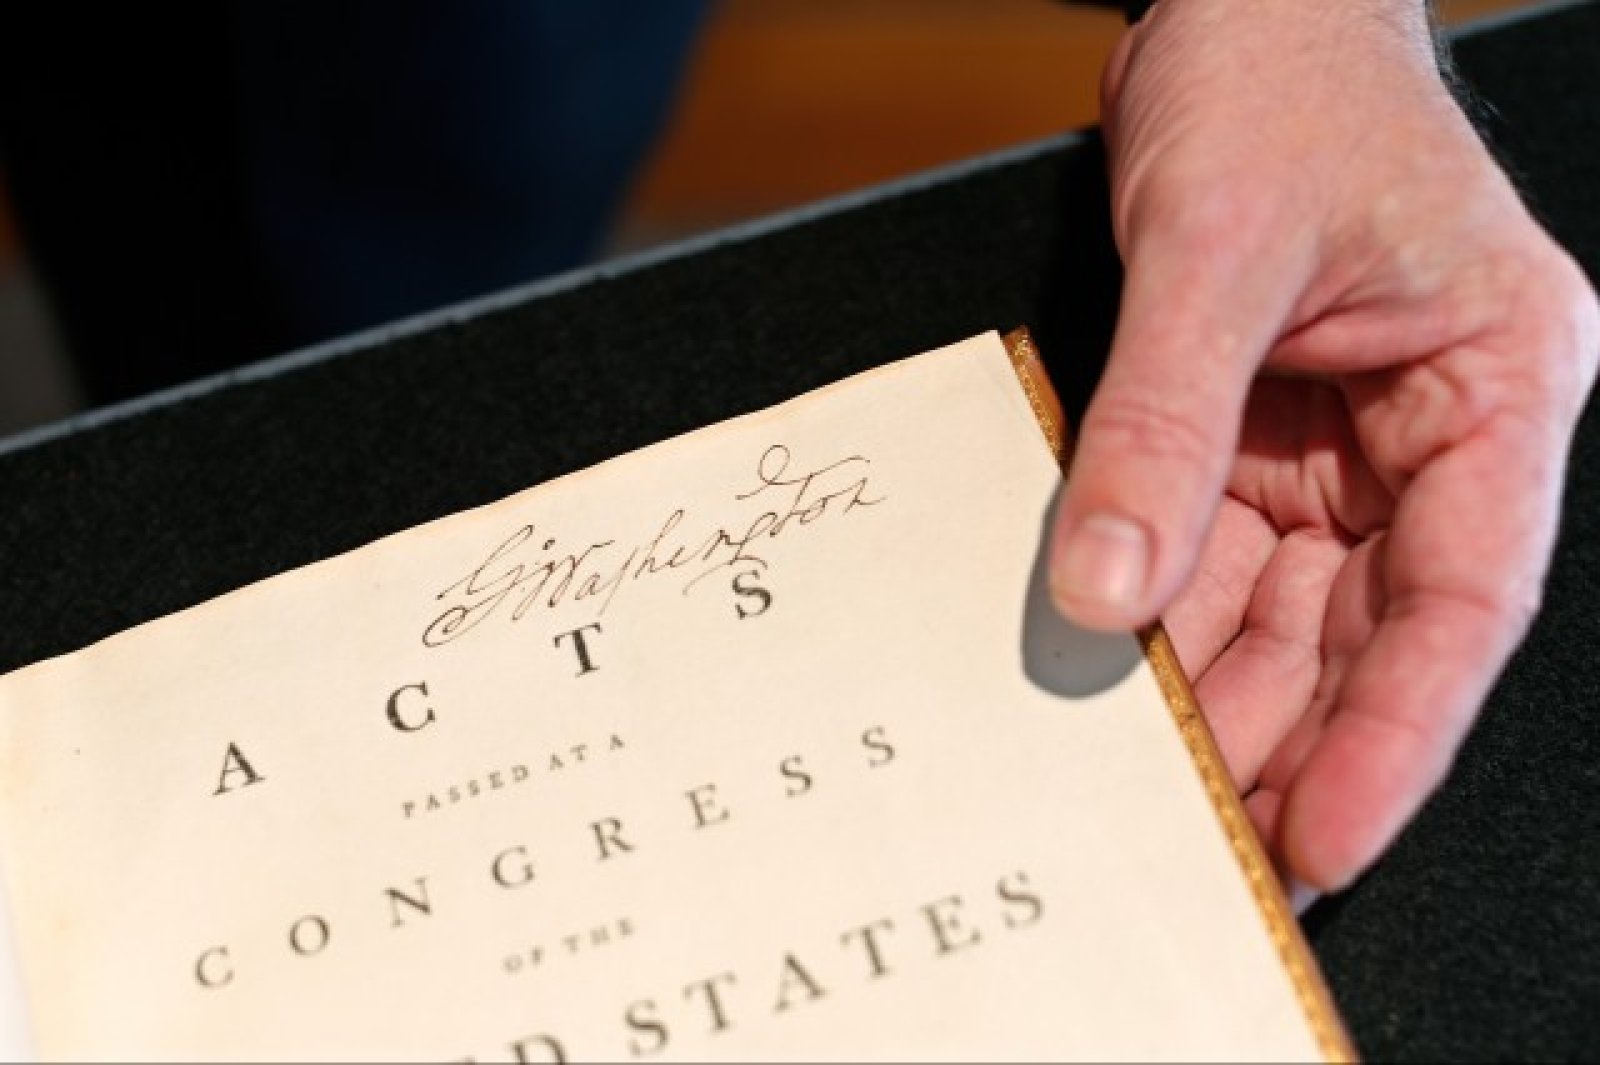 G:Washington
ACTS
PASSED AT A
CONGRESS
OF THE
STATES